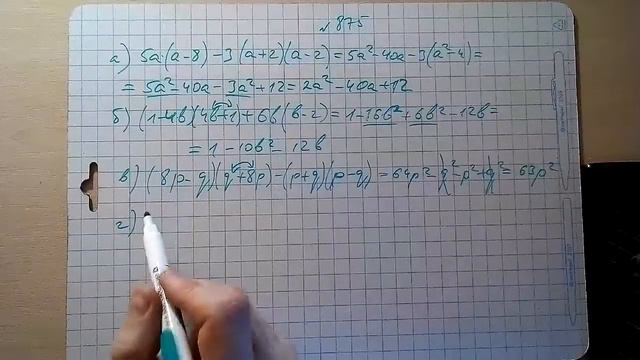 № 875
а) 5a(a-8)-3(a+2)(a-2)=5a²-40a-3(a²-4)=
=5a²-40a-3a²+12=2a²-40a+12
б) (1-4b)(4b+1)+6b(b-2)=1-16b²+6b²-12b=
=1-10b²-12b
в) (8p-q)(q+8p)-(p+q)(p-q)=64p²-q²-p²+q²=63p²
г)